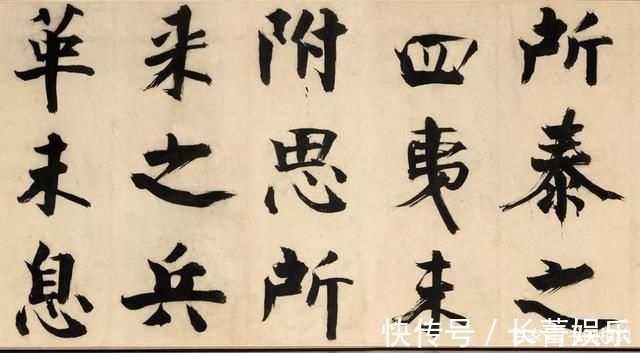 所泰之
四夷未
附思所
来之兵
革未息
快传号 / 长菁娱乐